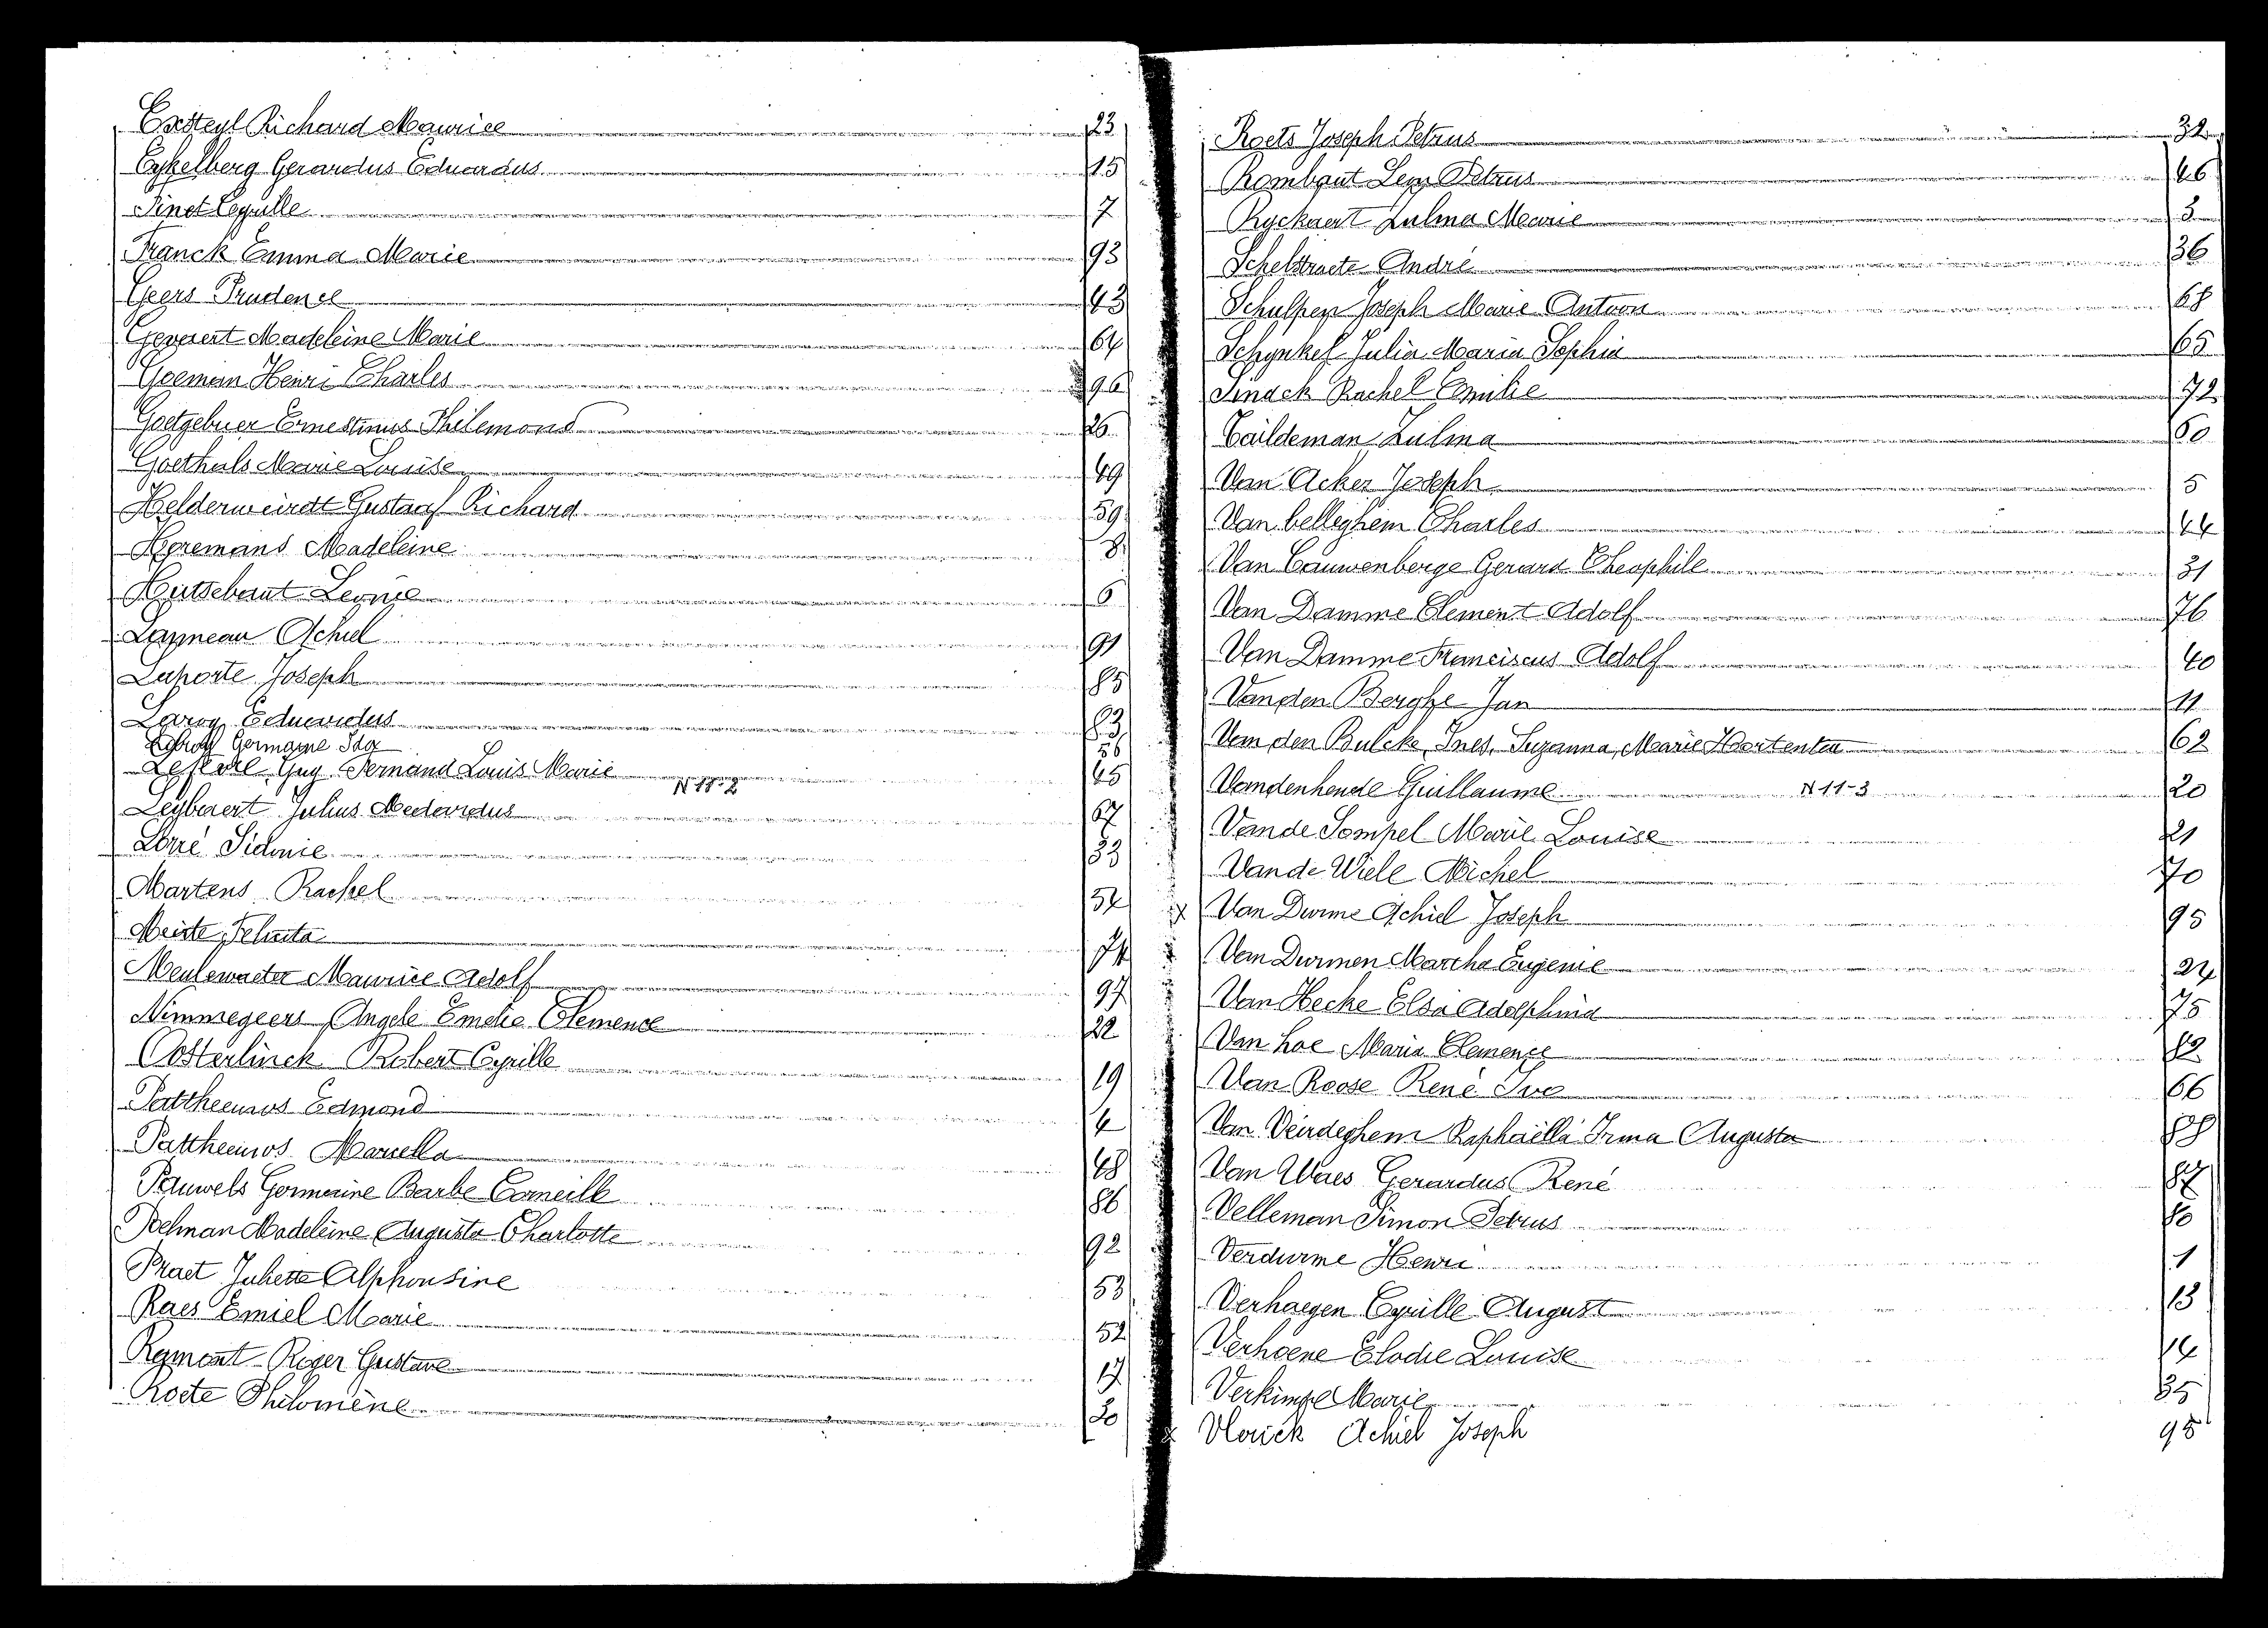 Exsteyl Richard Maurice 23
Eykelberg Gerardus Eduardus 15
Finet Cyrille 7
Franck Emma Marie 93
Geers Prudence 43
Gevaert Madeleine Marie 64
Goeman Henri Charles 96
Goetgebuer Ernestinus Philemond 26
Goethals Marie Louise 49
Helderweirdt Gustaaf Richard 59
Heremans Madeleine 8
Hutsebaut Leonie 6
Lanneau Achiel 91
Laporte Joseph 85
Laroy Eduardus 83
Leroy Germaine Ida 56
Lefevre Guy Fernand Louis Marie 45
N 11-2
Leybaert Julius Medardus 67
Lorré Sidonie 33
Martens Rachel 54
Meiste Felicita 74
Meulewaeter Maurice Adolf 97
Nimmegeers Angele Emelie Clemence 22
Oosterlinck Robert Cyrille 19
Pattheeuws Edmond 4
Pattheeuws Marcella 48
Pauwels Germaine Barbe Corneille 86
Poelman Madeleine Augusta Charlotte 92
Praet Juliette Alphonsine 53
Raes Emiel Marie 52
Roger Gustave 17
Roete Philomène 30
Roets Joseph Petrus 32
Rombaut Leon Petrus 46
Ryckaert Zulma Marie 3
Schelstraete André 36
Schulpen Joseph Marie Antoon 68
Schynkel Julia Maria Sophia 65
Sinack Rachel Emilie 72
Taildeman Zulma 60
Van Acker Joseph 5
Van belleghem Charles 44
Van Cauwenberge Gerard Theophile 31
Van Damme Clement Adolf 76
Van Damme Franciscus Adolf 40
Van den Berghe Jan 11
Van den Bulcke, Ines, Suzanna, Marie Hortentia 62
Vandenhende Guillaume N 11-3 20
Van de Sompel Marie Louise 21
Van de Wiele Michel 70
x Van Durme Achiel Joseph 95
Van Durmen Martha Eugenie 24
Van Hecke Elsa Adolphina 75
Van hoe Maria Clemence 82
Van Roose René Ivo 66
Van Veirdeghem Raphaëlla Irma Augusta 88
Van Waes Gerardus René 87
Velleman Simon Petrus 80
Verdurme Henri 1
Verhaegen Cyrille August 13
Verhoene Elodie Louise 14
Verkimpe Marie 35
x Vlerick Achiel Joseph 95